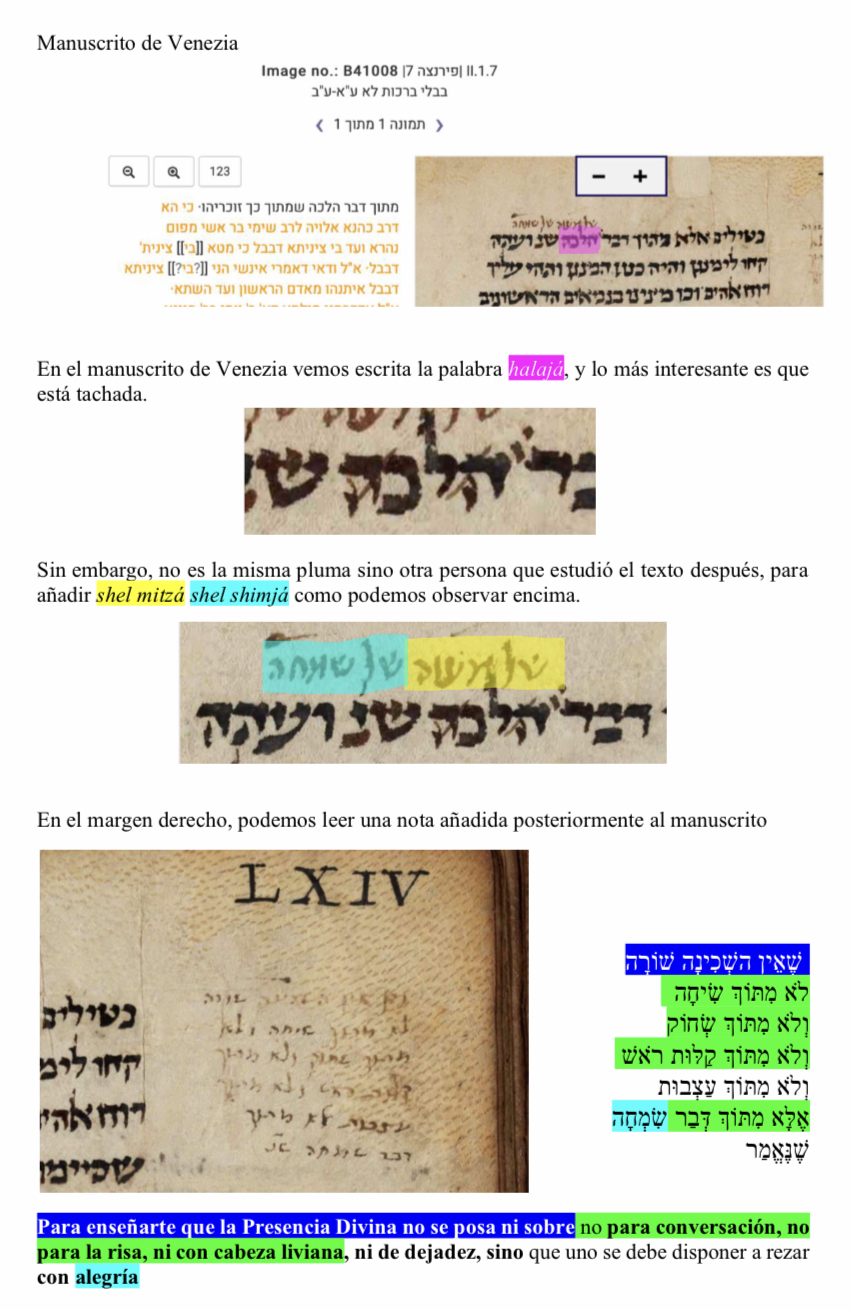 Manuscrito de Venezia
Image no.: B41008 |פירנצה 7| II.1.7
בבלי ברכות לא ע"א-ע"ב
❮ תמונה 1 מתוך 1 ❯
123
− +
מתוך דבר הלכה שמתוך כך זוכריהו· כי הא
דרב כהנא אלויה לרב שימי בר אשי מפום
נהרא ועד בי ציניתא דבבל כי מטא [[בי]] צינית'
דבבל· א"ל ודאי דאמרי אינשי הני [[?בי?]] ציניתא
דבבל איתנהו מאדם הראשון ועד השתא·
של מצוה של שמחה
בטילים אלא מתוך דבר הלכה שנ ועתה
קחו לי מנגן והיה כנגן המנגן ותהי עליו
En el manuscrito de Venezia vemos escrita la palabra halajá, y lo más interesante es que
está tachada.
דבר הלכה ש
Sin embargo, no es la misma pluma sino otra persona que estudió el texto después, para
añadir shel mitzá shel shimjá como podemos observar encima.
של מצוה של שמחה
דבר הלכה שנ ועתה
En el margen derecho, podemos leer una nota añadida posteriormente al manuscrito
LXIV
בטילים
קחו לימ
שֶׁאֵין השְׁכִינָה שׁוֹרָה
לֹא מִתּוֹךְ שִׂיחָה
וְלֹא מִתּוֹךְ שְׂחוֹק
וְלֹא מִתּוֹךְ קַלּוּת רֹאשׁ
וְלֹא מִתּוֹךְ עַצְבוּת
אֶלָּא מִתּוֹךְ דְּבַר שִׂמְחָה
שֶׁנֶּאֱמַר
Para enseñarte que la Presencia Divina no se posa ni sobre no para conversación, no
para la risa, ni con cabeza liviana, ni de dejadez, sino que uno se debe disponer a rezar
con alegría